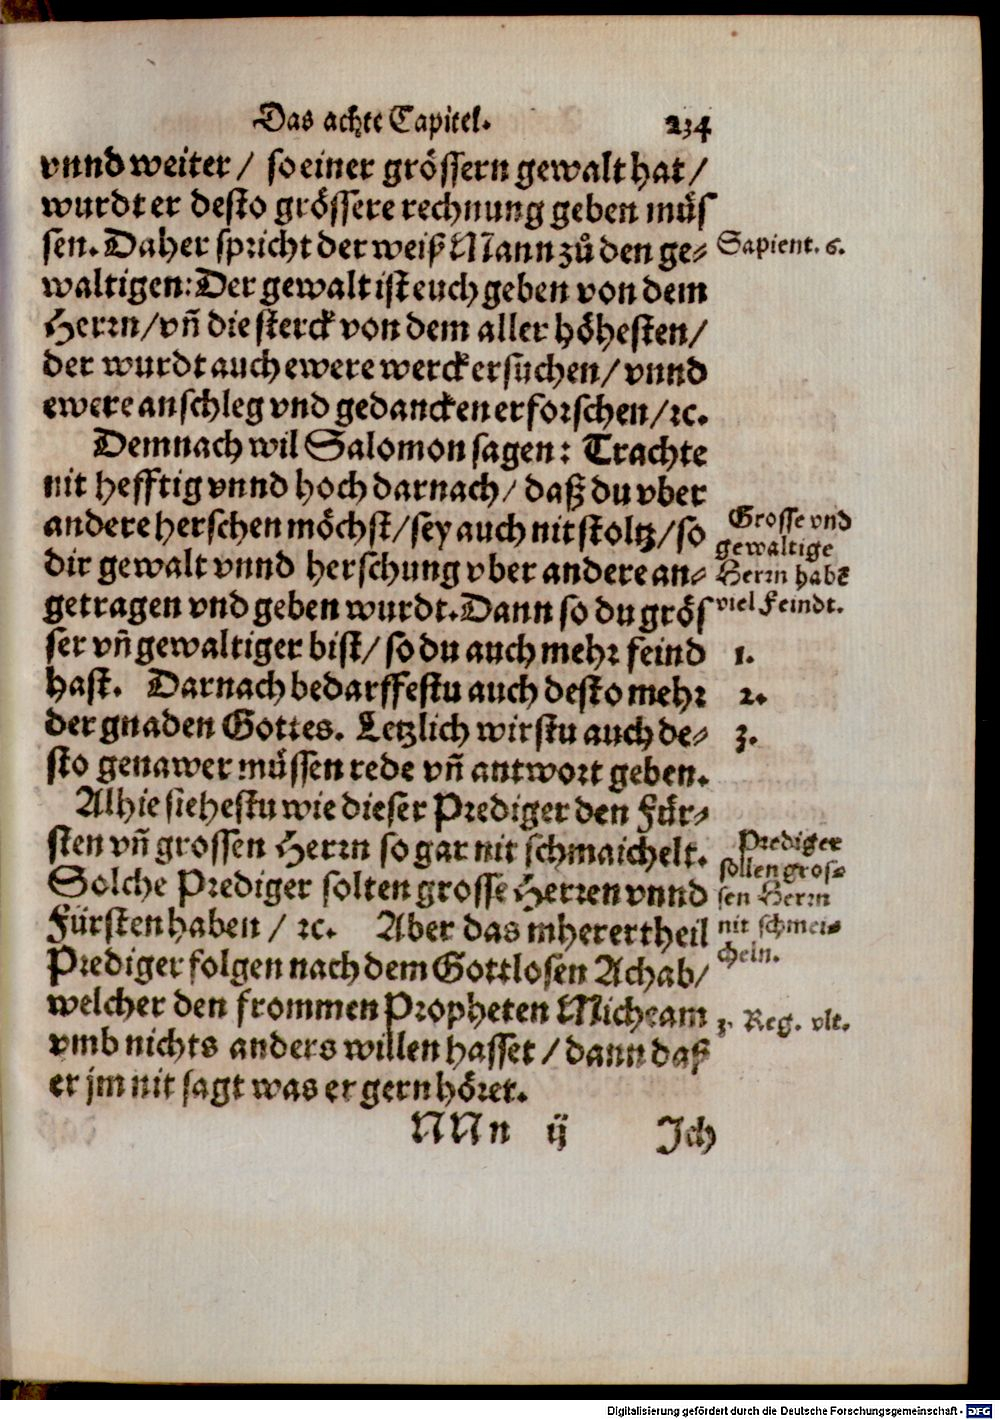 Das achte Capitel. 234
vnnd weiter / so einer grössern gewalt hat /
wurdt er desto grössere rechnung geben müs
sen. Daher spricht der weiß Mann zů den ge⸗
Sapient. 6.
waltigen: Der gewalt ist euch geben von dem
Herrn / vñ die sterck von dem aller höhesten /
der wurdt auch ewere werck ersůchen / vnnd
ewere anschleg vnd gedancken erforschen / ꝛc.
Demnach wil Salomon sagen: Trachte
nit hefftig vnnd hoch darnach / daß du vber
andere herschen möchst / sey auch nit stoltz / so
dir gewalt vnnd herschung vber andere an⸗
getragen vnd geben wurdt. Dann so du grös
ser vñ gewaltiger bist / so du auch mehr feind
hast. Darnach bedarffestu auch desto mehr
der gnaden Gottes. Letzlich wirstu auch de⸗
sto genawer müssen rede vñ antwort geben.
Grosse vnd
gewaltige
Herrn habē
viel Feindt.
1.
2.
3.
Alhie siehestu wie dieser Prediger den Für⸗
sten vñ grossen Herrn so gar nit schmaichelt.
Solche Prediger solten grosse Herren vnnd
Fürsten haben / ꝛc. Aber das mherertheil
Prediger folgen nach dem Gottlosen Achab /
welcher den frommen Propheten Micheam
vmb nichts anders willen hasset / dann daß
er jm nit sagt was er gern höret.
Prediger
sollen gros⸗
sen Herrn
nit schmei⸗
cheln.
3. Reg. vlt.
NNn ij Ich
Digitalisierung gefördert durch die Deutsche Forschungsgemeinschaft - DFG